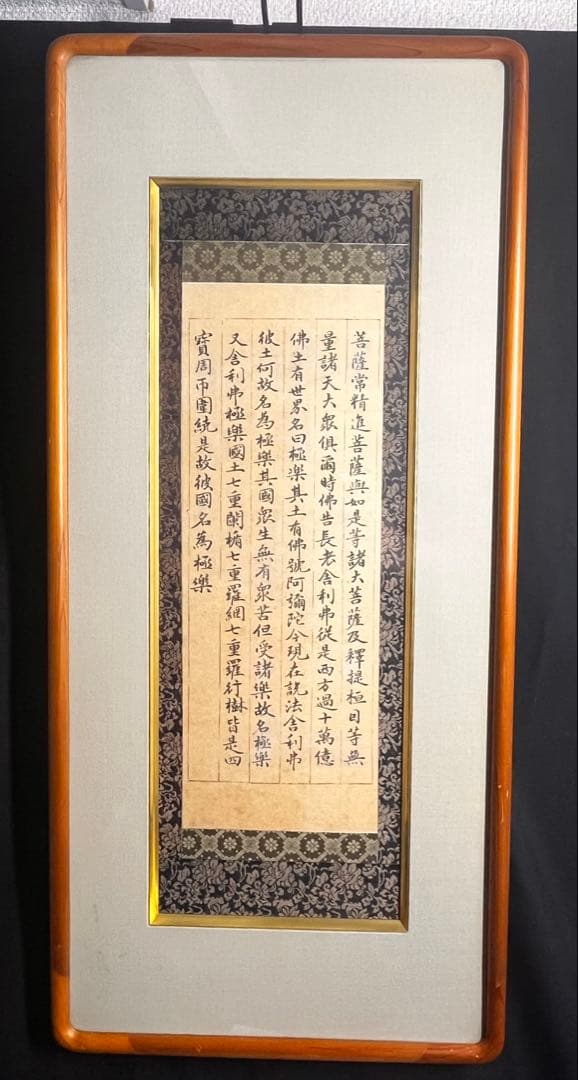 菩薩常精進菩薩與如是等諸大菩薩及釋提桓因等無
量諸天大眾俱爾時佛告長老舍利弗從是西方過十萬億
佛土有世界名曰極樂其土有佛號阿彌陀今現在說法舍利弗
彼土何故名為極樂其國眾生無有眾苦但受諸樂故名極樂
又舍利弗極樂國土七重闌楯七重羅網七重羅行樹皆是四
寶周帀圍繞是故彼國名為極樂